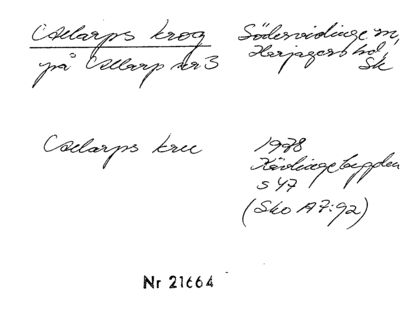 Allarps krog
Södervidinge sn,
Harjagers hd,
på Allarp nr 3
Sk
Allarps kru
1978
Kävlingebygden
s 47
(Sko A7:92)
Nr 21664